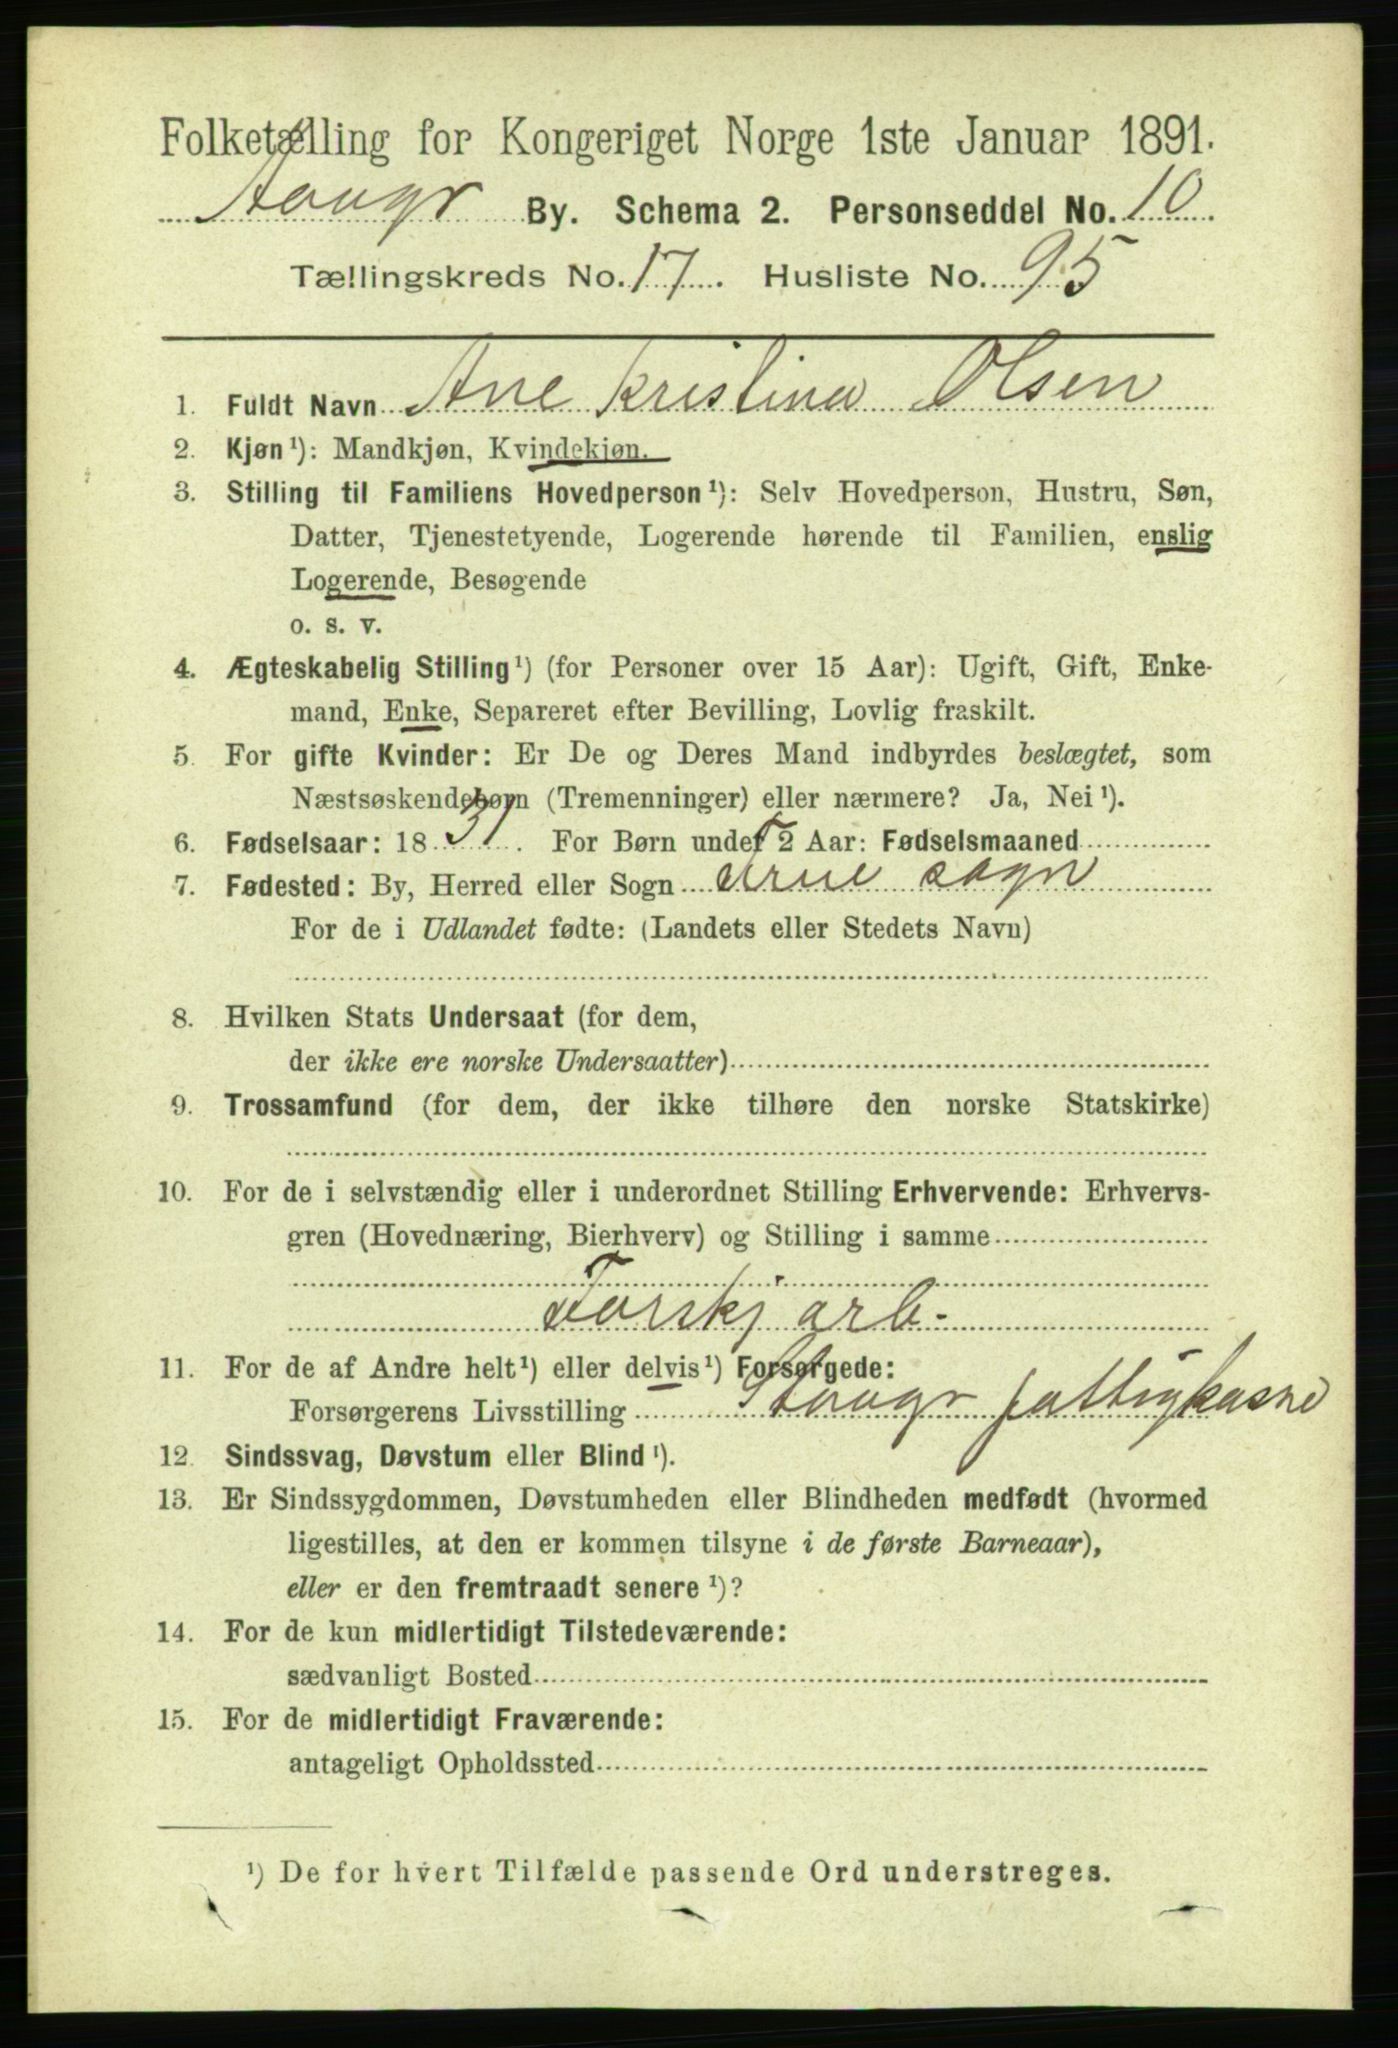 Folketælling for Kongeriget Norge 1ste Januar 1891.
Stavgr By. Schema 2. Personseddel No. 10
Tællingskreds No. 17. Husliste No. 95
1. Fuldt Navn Ane Kristina Olsen
2. Kjøn¹): Mandkjøn, Kvindekjøn.
3. Stilling til Familiens Hovedperson¹): Selv Hovedperson, Hustru, Søn,
Datter, Tjenestetyende, Logerende hørende til Familien, enslig
Logerende, Besøgende
o. s. v.
4. Ægteskabelig Stilling¹) (for Personer over 15 Aar): Ugift, Gift, Enke-
mand, Enke, Separeret efter Bevilling, Lovlig fraskilt.
5. For gifte Kvinder: Er De og Deres Mand indbyrdes beslægtet, som
Næstsøskendebørn (Tremenninger) eller nærmere? Ja, Nei¹).
6. Fødselsaar: 1831. For Børn under 2 Aar: Fødselsmaaned
7. Fødested: By, Herred eller Sogn sogn
For de i Udlandet fødte: (Landets eller Stedets Navn)
8. Hvilken Stats Undersaat (for dem,
der ikke ere norske Undersaatter)
9. Trossamfund (for dem, der ikke tilhøre den norske Statskirke)
10. For de i selvstændig eller i underordnet Stilling Erhvervende: Erhvervs-
gren (Hovednæring, Bierhverv) og Stilling i samme
Forskj arb.
11. For de af Andre helt¹) eller delvis¹) Forsørgede:
Forsørgerens Livsstilling Stavgr fattigkasse
12. Sindssvag, Døvstum eller Blind¹).
13. Er Sindssygdommen, Døvstumheden eller Blindheden medfødt (hvormed
ligestilles, at den er kommen tilsyne i de første Barneaar),
eller er den fremtraadt senere¹)?
14. For de kun midlertidigt Tilstedeværende:
sædvanligt Bosted
15. For de midlertidigt Fraværende:
antageligt Opholdssted
¹) De for hvert Tilfælde passende Ord understreges.